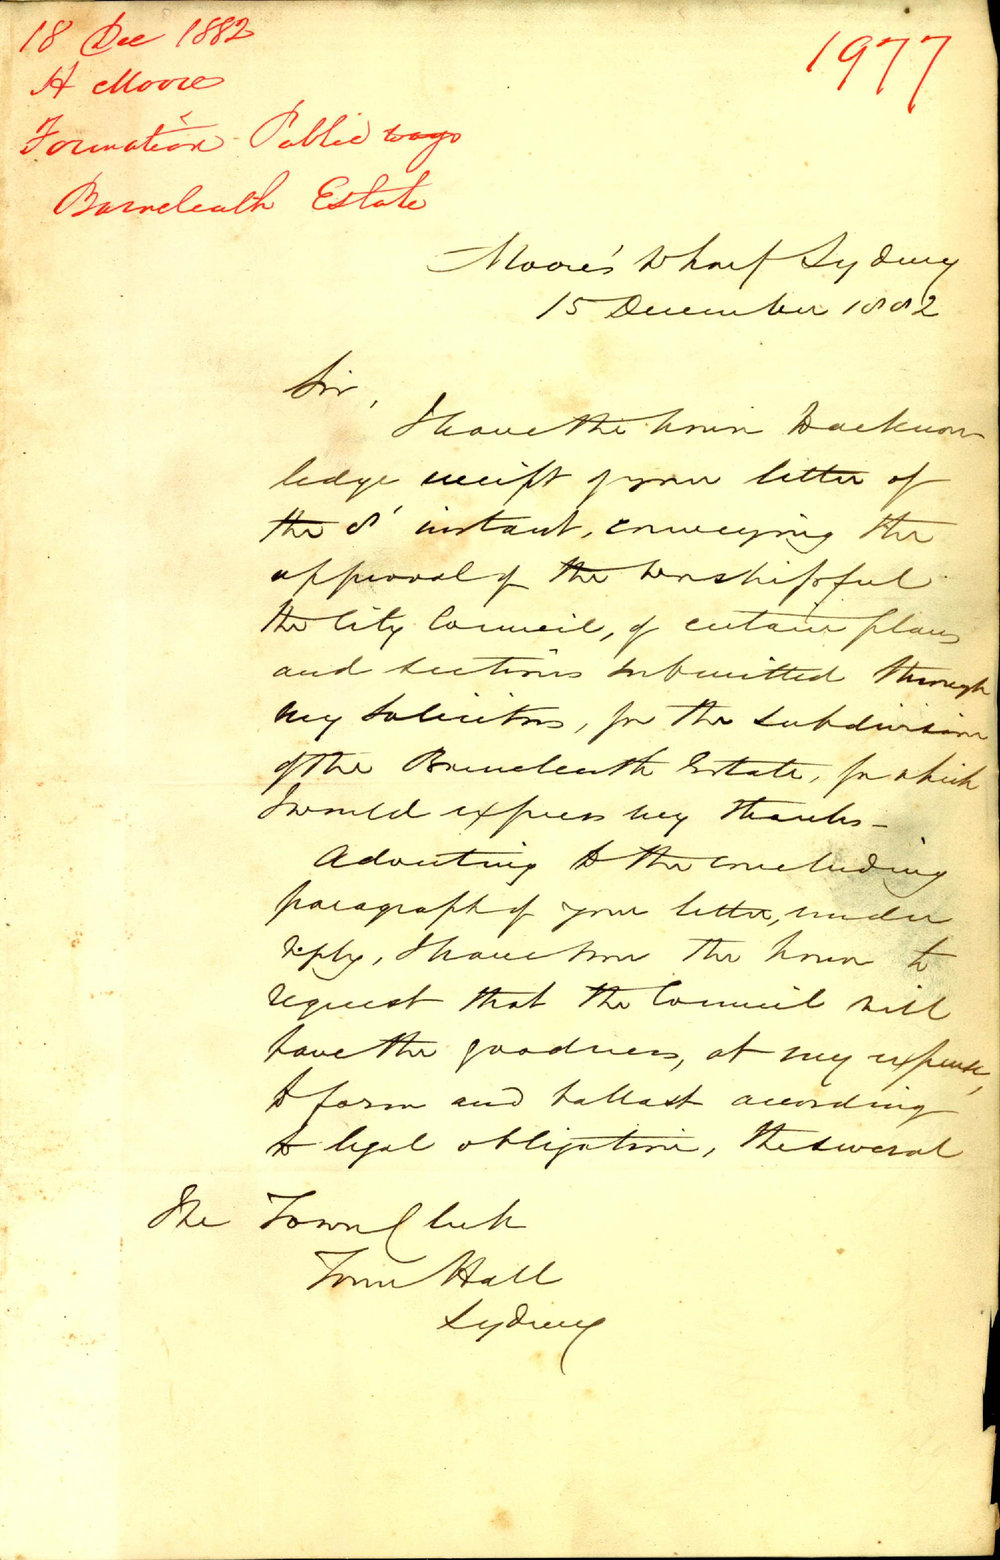 18 Dec 1882
H Moore
Formation Public ways
Barncleuth Estate
1977
Moore's Wharf Sydney
15 December 1882
Sir,
I have the honor to acknow-
ledge receipt of your letter of
the 8' instant, conveying the
approval of the worshipful
the City Council, of certain plans
and sections submitted through
my Solicitors, for the subdivision
of the Barncleuth Estate, for which
I would express my thanks -
Adverting to the concluding
paragraph of your letter, under
reply, I have now the honor to
request that the Council will
have the goodness, at my expense,
to form and ballast according
to legal obligation, the several
The Town Clerk
Town Hall
Sydney